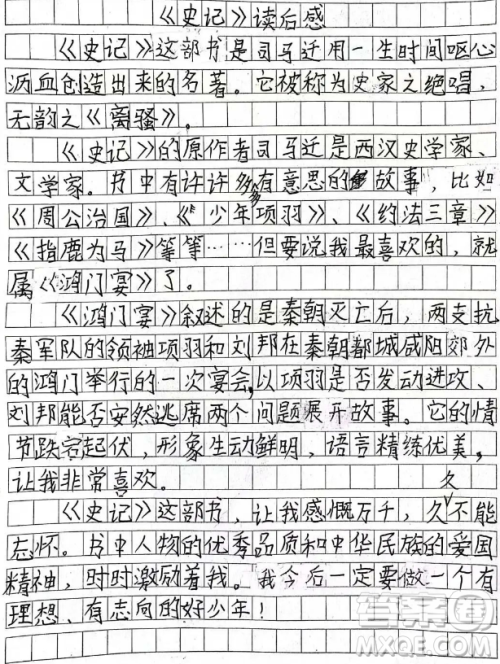 《史记》读后感
《史记》这部书是司马迁用一生时间呕心
沥血创造出来的名著。它被称为史家之绝唱、
无韵之《离骚》。
《史记》的原作者司马迁是西汉史学家、
文学家。书中有许许多多有意思的故事，比如
《周公治国》、《少年项羽》、《约法三章》
《指鹿为马》等等……但要说我最喜欢的，就
属《鸿门宴》了。
《鸿门宴》叙述的是秦朝灭亡后，两支抗
秦军队的领袖项羽和刘邦在秦朝都城咸阳郊外
的鸿门举行的一次宴会，以项羽是否发动进攻、
刘邦能否安然逃席两个问题展开故事。它的情
节跌宕起伏，形象生动鲜明，语言精练优美，
让我非常喜欢。
《史记》这部书，让我感慨万千，久久不能
忘怀。书中人物的优秀品质和中华民族的爱国
精神，时时激励着我。我今后一定要做一个有
理想、有志向的好少年！
答案圈
MXQE.COM